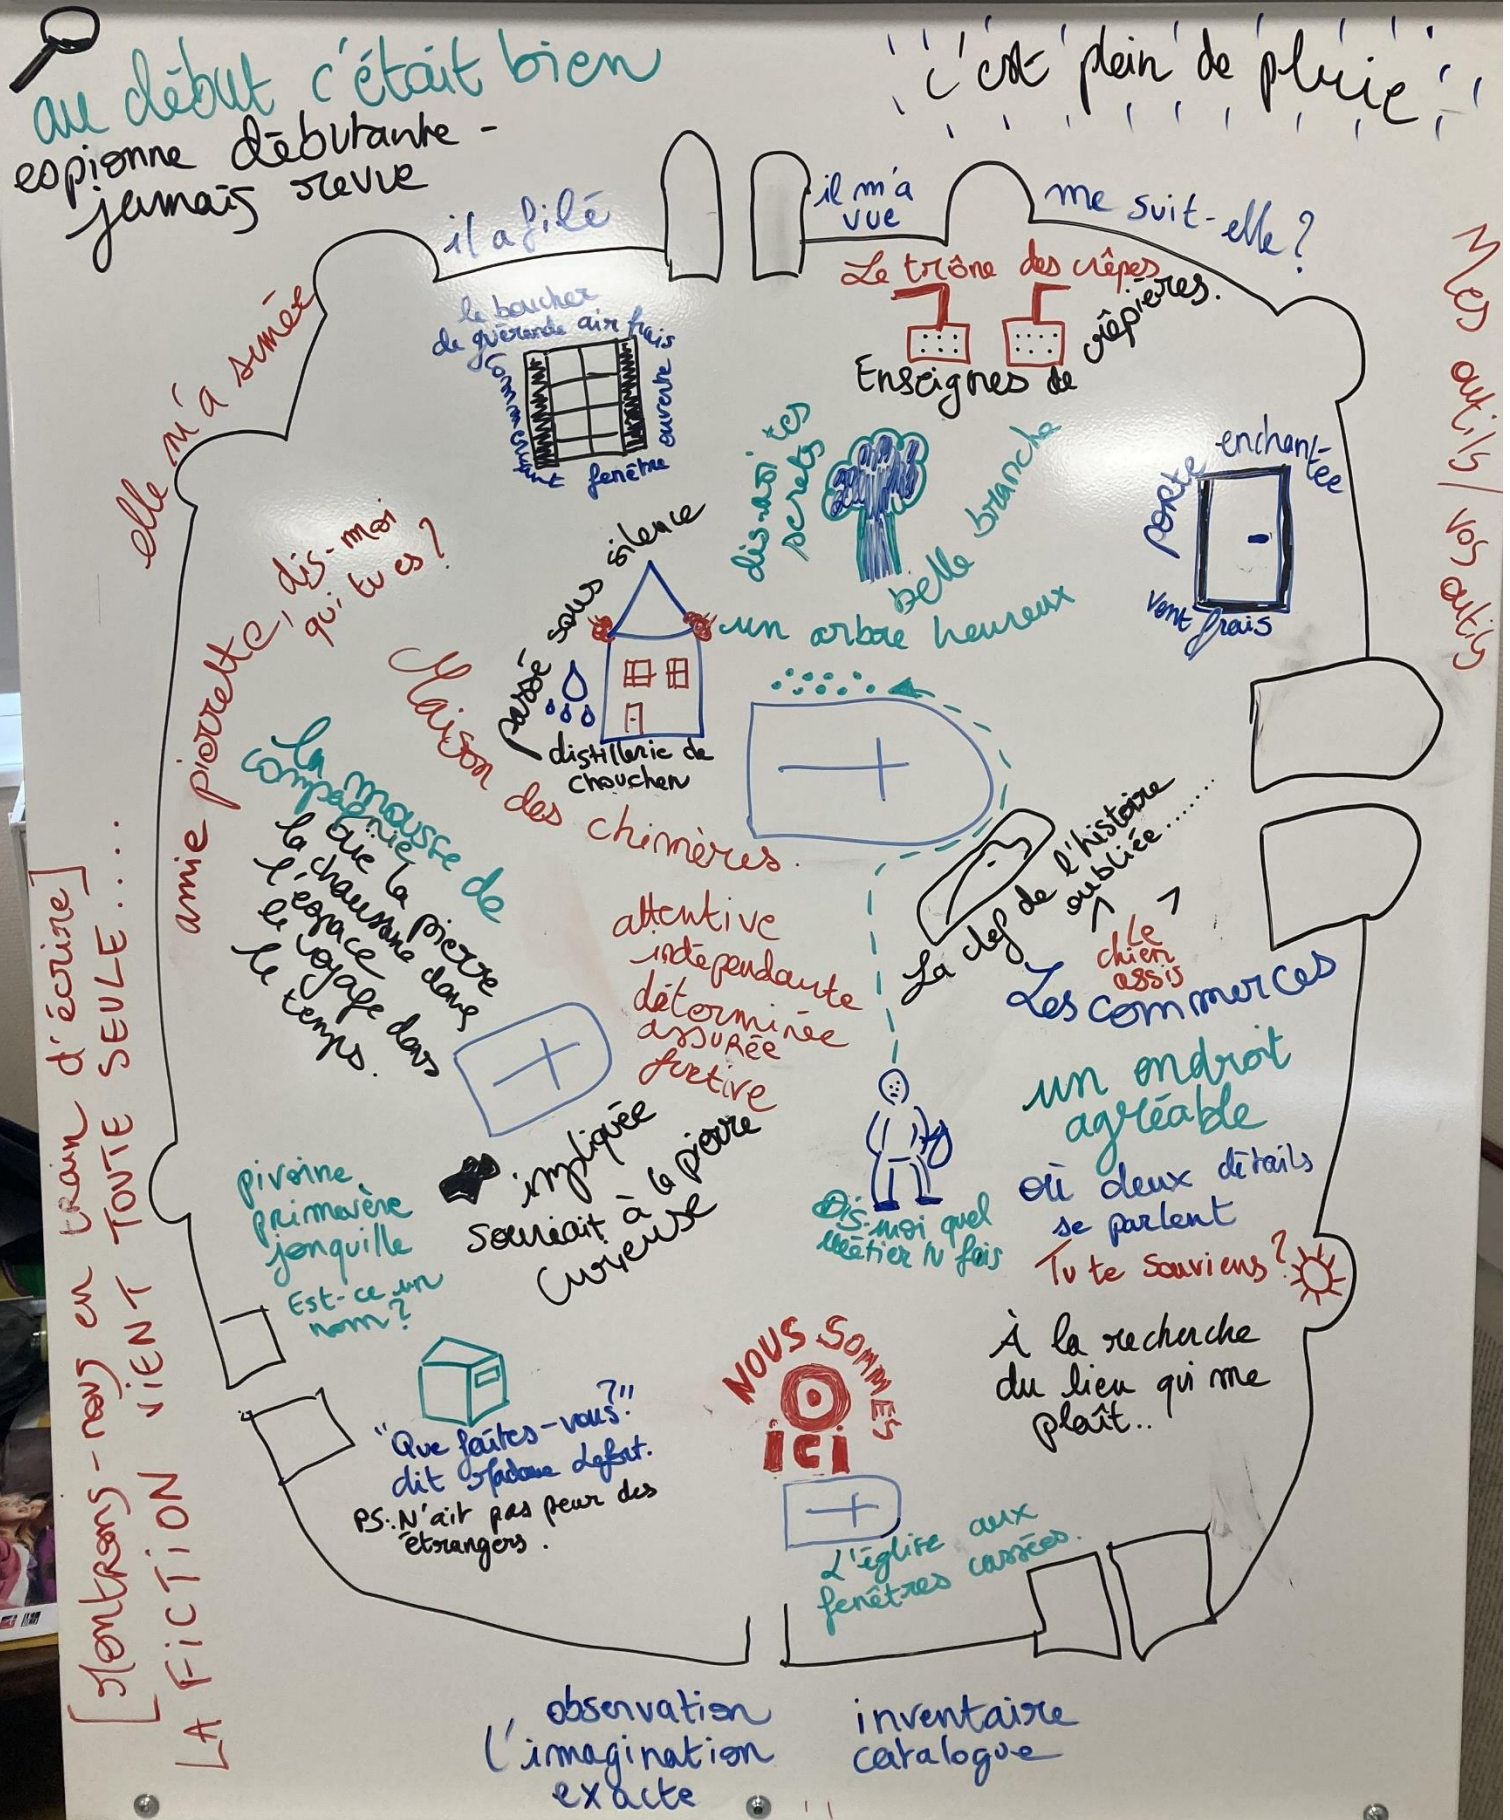 au début c'était bien
espionne débutante -
jamais revue
c'est plein de pluie
il a filé
il m'a
vue
me suit-elle ?
elle m'a semée
Mes outils / vos outils
le boucher
de guérande air frais
commençant
ouverte
fenêtre
Le trône des crêpes
Enseignes de crêpières.
dis-moi tes
secrets
belle branche
un arbre heureux
porte enchantée
vent frais
amie pierrette, dis-moi
qui tu es ?
passé sous silence
distillerie de
chouchen
Maison des chimères.
la mousse de
compagnie
que la pierre
la chaussure dans
l'espace
le voyage dans
le temps.
attentive
indépendante
déterminée
assurée
furtive
impliquée
souriait à la pierre
curieuse
La clef de l'histoire
oubliée........
Le
chien
assis
Les commerces
un endroit
agréable
où deux détails
se parlent
Tu te souviens ?
Dis-moi quel
métier tu fais
pivoine
primevère
jonquille
Est-ce un
nom ?
"Que faites-vous ?"
dit Madame Lefort.
PS: N'ait pas peur des
étrangers.
NOUS SOMMES
ici
À la recherche
du lieu qui me
plaît..
L'église aux
fenêtres cassées.
[Montrons-nous en train d'écrire]
LA FICTION VIENT TOUTE SEULE.....
observation
l'imagination
exacte
inventaire
catalogue